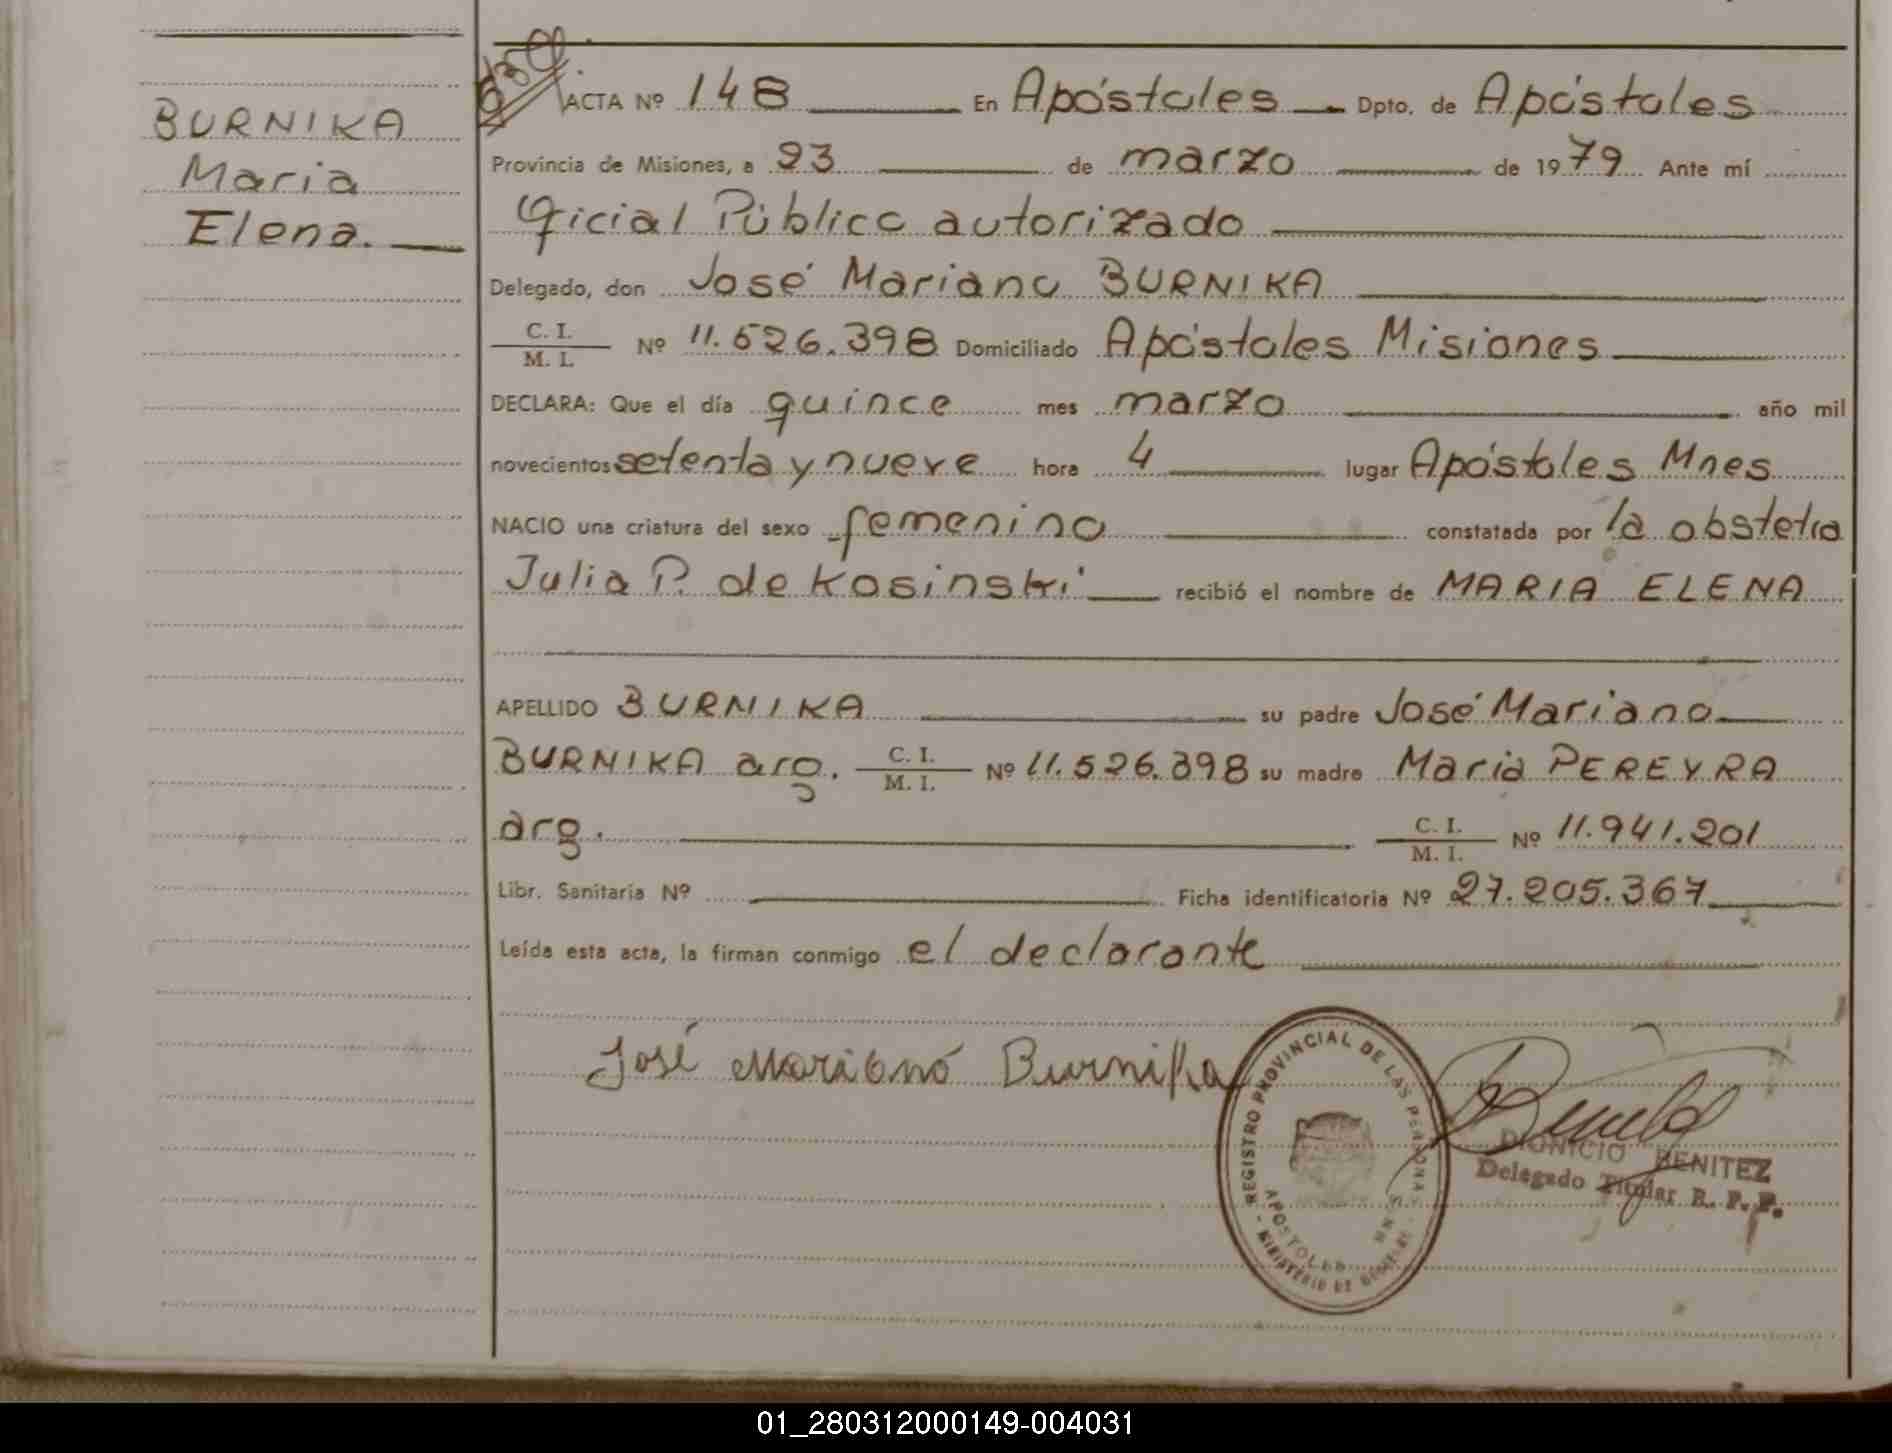 BURNIKA
Maria
Elena.
ACTA Nº 148 En Apóstoles Dpto. de Apóstoles
Provincia de Misiones, a 23 de marzo de 1979. Ante mí
Oficial Público autorizado
Delegado, don José Mariano BURNIKA
C. I.
M. I. Nº 11.526.398 Domiciliado Apóstoles Misiones
DECLARA: Que el día quince mes marzo año mil
novecientos setenta y nueve hora 4 lugar Apóstoles Mnes
NACIO una criatura del sexo femenino constatada por la obstetra
Julia P. de Kosinski recibió el nombre de MARIA ELENA
APELLIDO BURNIKA su padre José Mariano
BURNIKA arg. C. I. M. I. Nº 11.526.398 su madre Maria PEREYRA
arg. C. I. M. I. Nº 11.941.201
Libr. Sanitaria Nº Ficha identificatoria Nº 27.205.367
Leída esta acta, la firman conmigo el declarante
José Marianó Burnika
REGISTRO PROVINCIAL DE LAS PERSONAS
APOSTOLES MNES
MINISTERIO DE GOBIERNO
DIONICIO BENITEZ
Delegado Titular R. P. P.
01_280312000149-004031